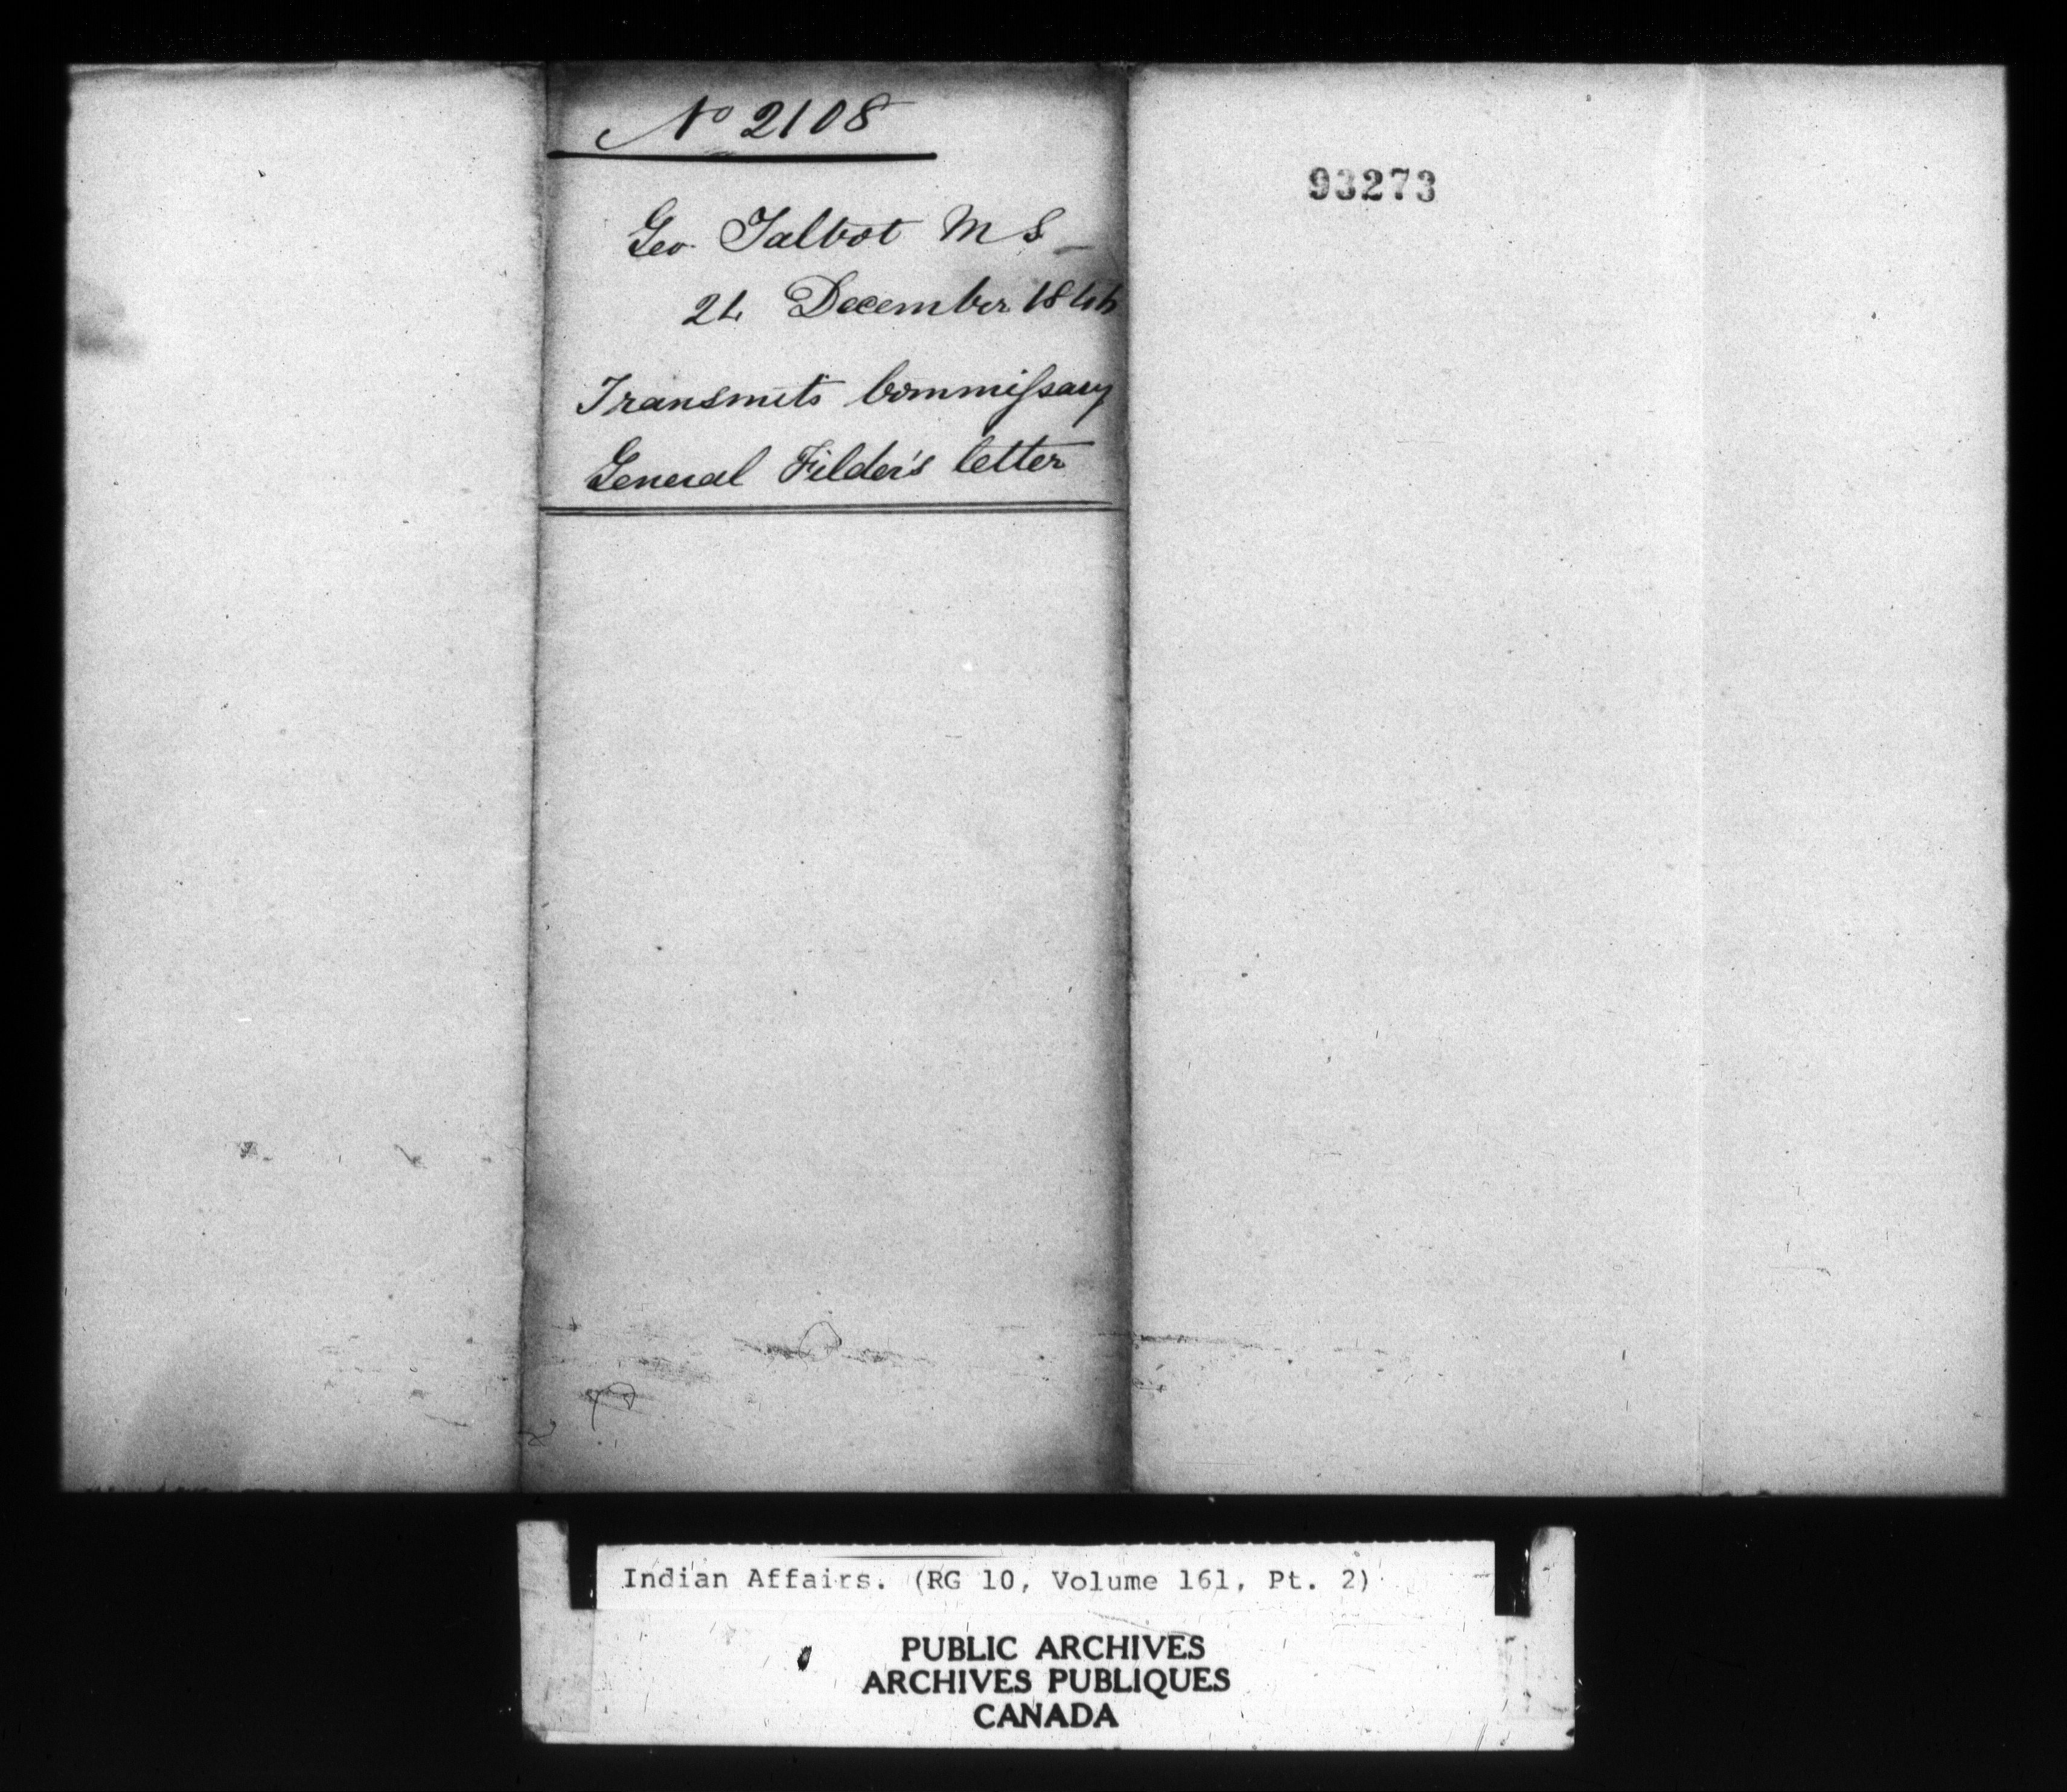 No 2108
Geo Talbot M S
24 December 1846
Transmits Commissary
General Filder's letter
93273
Indian Affairs. (RG 10, Volume 161, Pt. 2)
PUBLIC ARCHIVES
ARCHIVES PUBLIQUES
CANADA